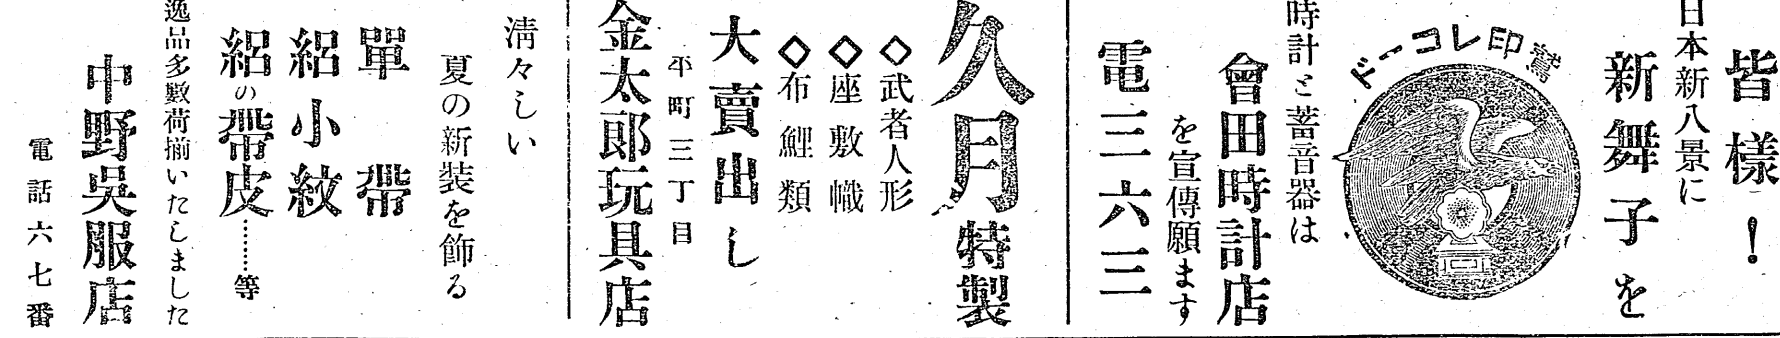 皆樣！
日本新八景に
新舞子を
鷲印レコード
時計と蓄音器は
會田時計店
を宣傳願ます
電三六三
久月特製
◇武者人形
◇座敷幟
◇布鯉類
大賣出し
平町三丁目
金太郎玩具店
淸々しい
夏の新装を飾る
單帶
絽小紋
絽の帶皮………等
逸品多數荷揃いたしました
中野吳服店
電話六七番